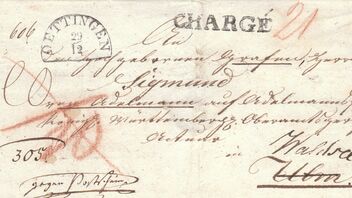 606
OETTINGEN
29
12
CHARGÉ
21
An
gebornen Grafen, Herr
Sigmund
von Adelmann auf Adelmanns
königl. Württembergs. Oberamts Ger
Actuar
in Waldsee
305
Ulm.
gegen Postschein